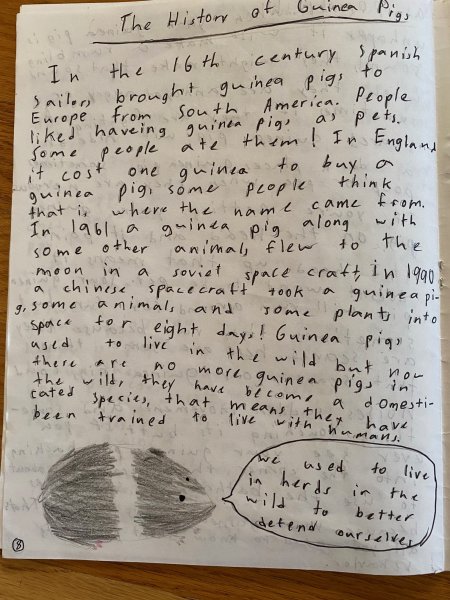 The History of Guinea Pigs
In the 16th century Spanish
sailors brought guinea pigs to
Europe from South America. People
liked haveing guinea pigs as pets.
Some people ate them! In England
it cost one guinea to buy a
guinea pig, some people think
that is where the name came from.
In 1961 a guinea pig along with
some other animals flew to the
moon in a soviet space craft, in 1990
a chinese spacecraft took a guinea pi-
g, some animals and some plants into
space for eight days! Guinea pigs
used to live in the wild but now
there are no more guinea pigs in
the wild, they have become a domesti-
cated species, that means they have
been trained to live with humans.
we used to live
in herds in the
wild to better
defend ourselves
8